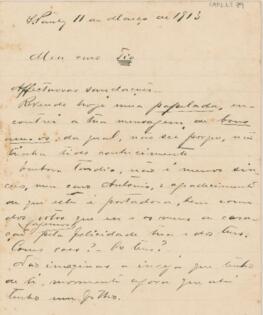 S. Paulo 11 de Março de 1913
Meu caro Tio
Affectuosas saudações
Revendo hoje uma papelada, en-
contrei a tua mensagem de bons
annos, da qual, não sei porque, não
tinha tido conhecimento
Embora tardio, não é menos sin-
cero, meu caro Antonio, o agradecimento
de que esta é portadora, bem como
dos votos que eu e os meus
fazemos pela felicidade tua e dos teus.
Como vaes? E os teus?
Não imaginas a inveja que tenho
de ti, momento agora que
tenho um filho.